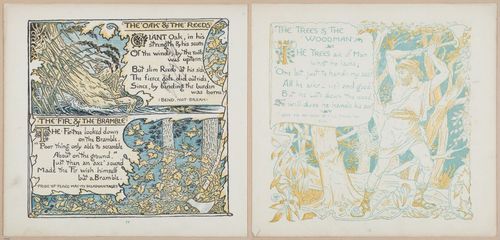 THE OAK & THE REEDS
GIANT Oak, in his
strength & his scorn
Of the winds, by the roots
was uptorn:
But slim Reeds at his side,
The fierce gale did outride,
Since, by bending the burden
was borne.
(BEND, NOT BREAK)
THE FIR & THE BRAMBLE
THE Fir-tree looked down
on the Bramble.
"Poor thing, only able to scramble
About on the ground."
Just then an axe' sound
Made the Fir wish himself
but a Bramble.
PRIDE OF PLACE HAS ITS DISADVANTAGES
THE TREES & THE
WOODMAN
THE TREES ask of Man
what he lacks;
One bit, just to handle my axe?
All he asks
But he cuts down